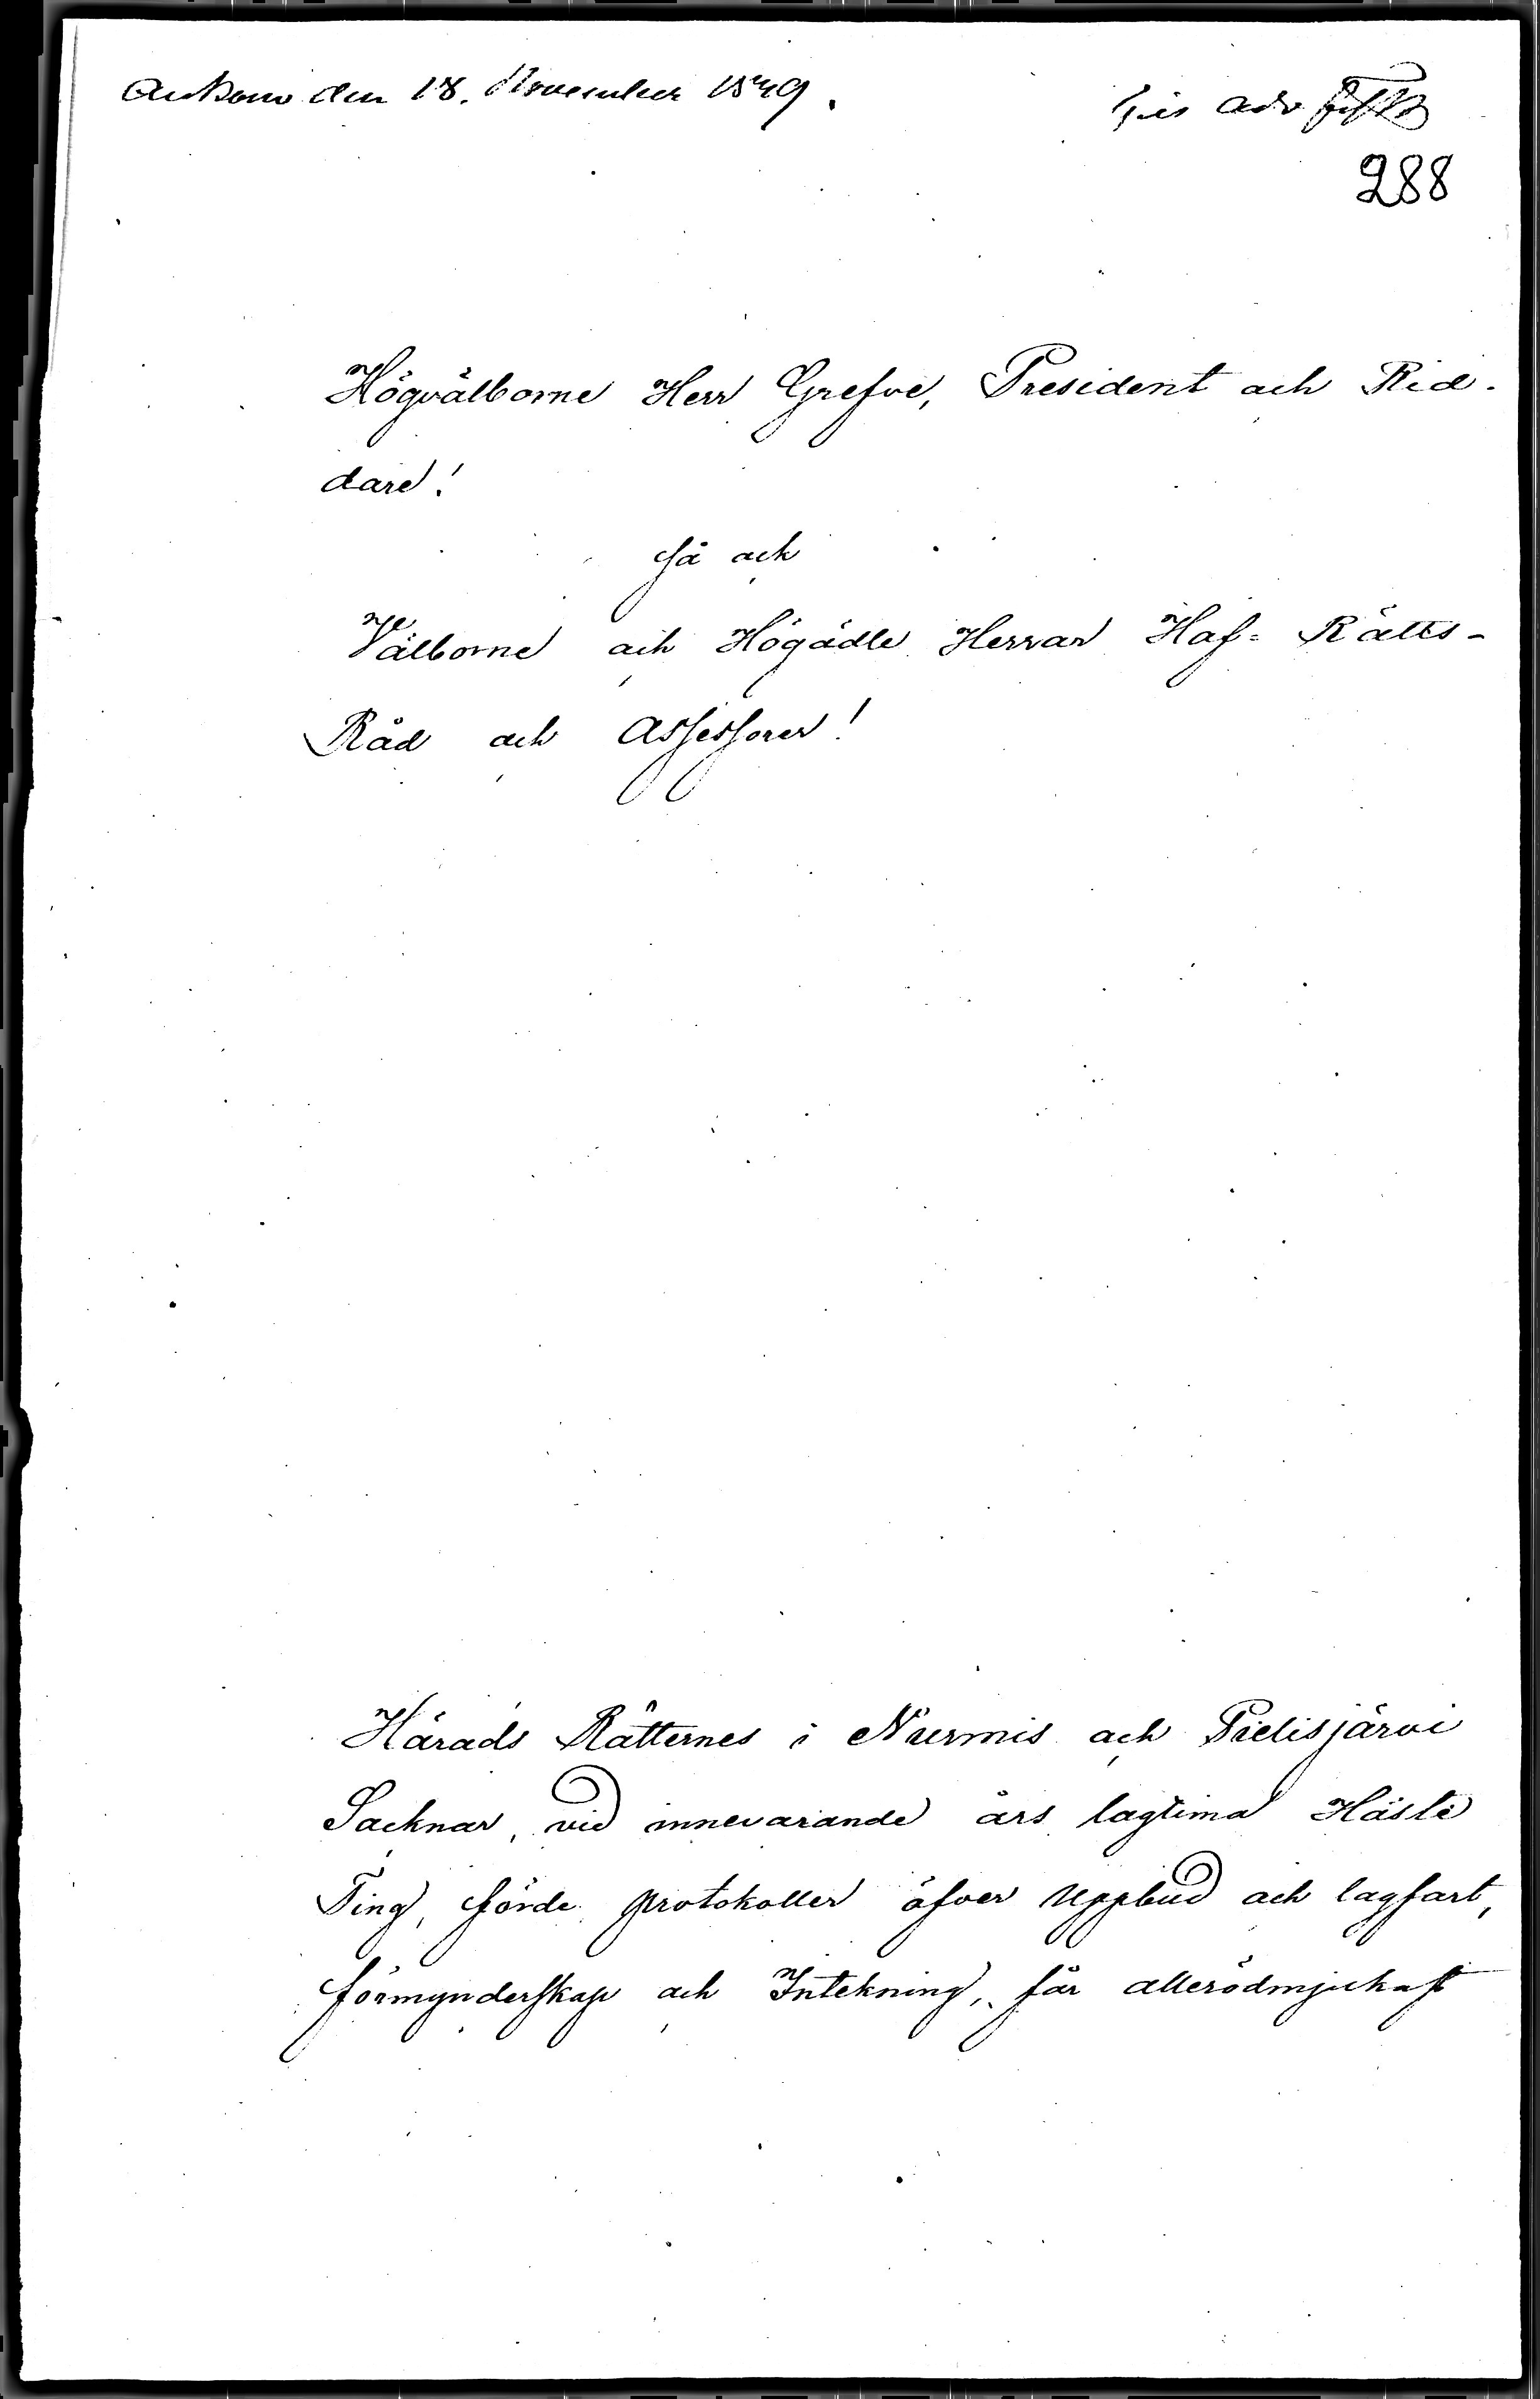 Ankom den 18. November 1849.
288
Högvälborne Herr Grefve, President och Rid-
dare!
Så och
Välborne och Högädle Herrar Hof= Rätts-
Råd och Assessorer!
Härads Rätternes i Nurmis och Pielisjärvi
Socknar, vid innevarande års lagtima Höste
Ting, förde protokoller öfver Uppbud och lagfart,
förmynderskap och Intekning, får allerödmjukast